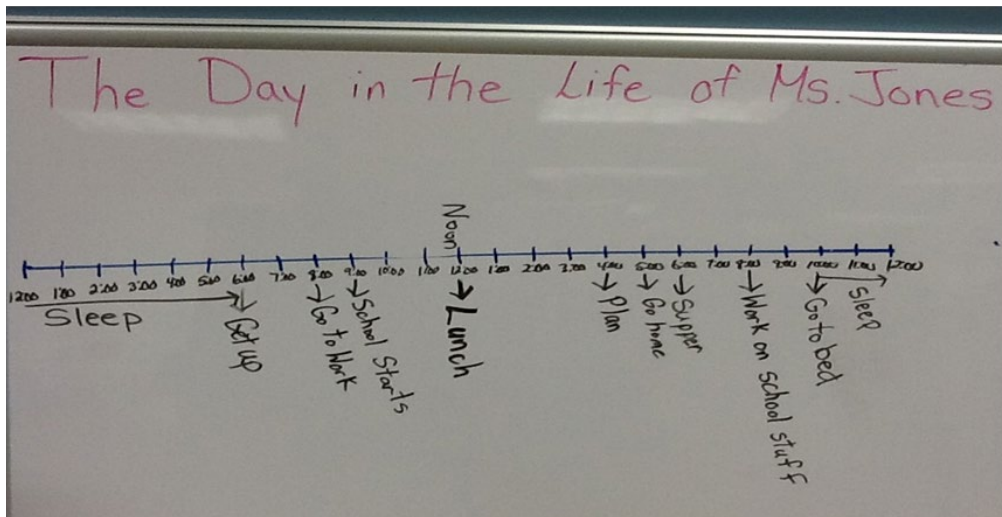 The Day in the Life of Ms. Jones
Noon
12:00 1:00 2:00 3:00 4:00 5:00 6:00 7:00 8:00 9:00 10:00 11:00 12:00 1:00 2:00 3:00 4:00 5:00 6:00 7:00 8:00 9:00 10:00 11:00 12:00
Sleep
Get up
Go to Work
School Starts
Lunch
Plan
Go home
Supper
Work on school stuff
Go to bed
Sleep